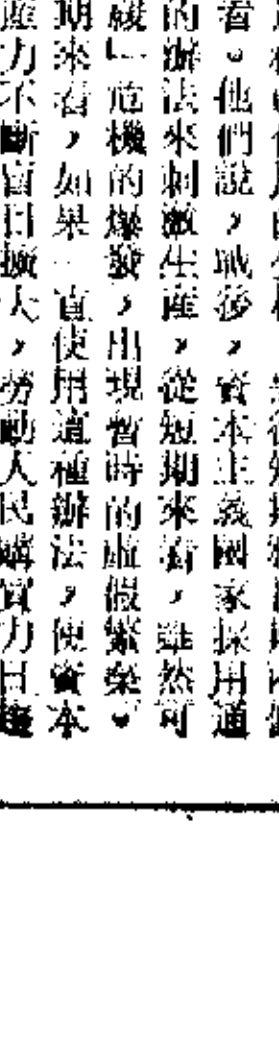 看。他們說，戰後，資本主義國家採用通
的辦法來刺激生產，從短期來看，雖然可
緩」危機的爆發，出現暫時的虛假繁榮。
期來看，如果一直使用這種辦法，使資本
產力不斷盲目擴大，勞動人民購買力日趨